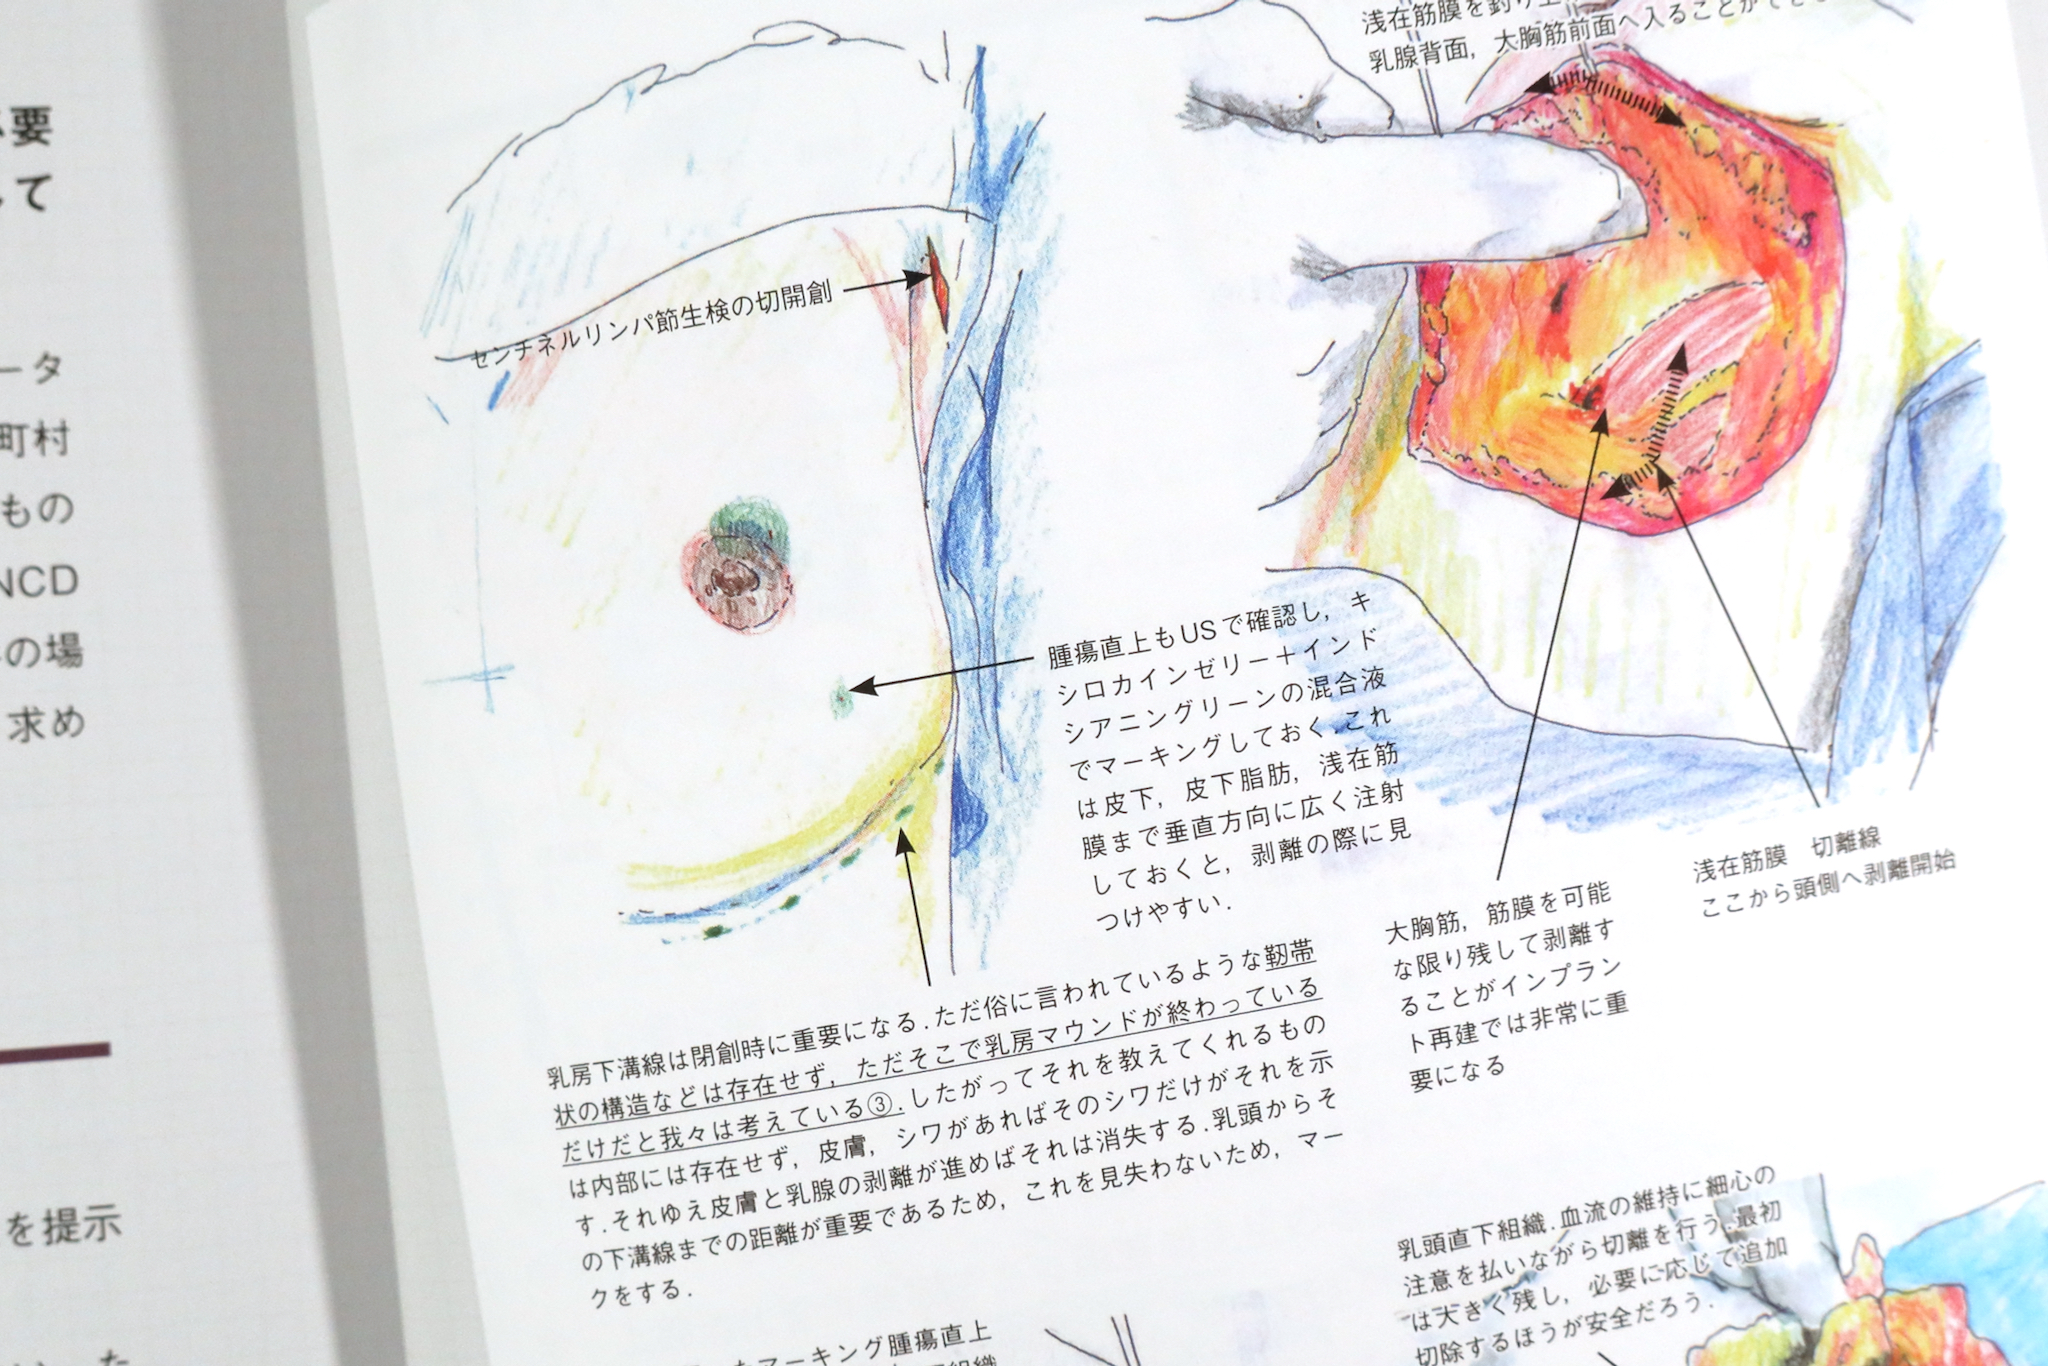 要
して
ータ
町村
もの
NCD
の場
求め
を提示
た
センチネルリンパ節生検の切開創
腫瘍直上もUSで確認し，キ
シロカインゼリー＋インド
シアニングリーンの混合液
でマーキングしておく．これ
は皮下，皮下脂肪，浅在筋
膜まで垂直方向に広く注射
しておくと，剥離の際に見
つけやすい．
乳房下溝線は閉創時に重要になる．ただ俗に言われているような靭帯
状の構造などは存在せず，ただそこで乳房マウンドが終わっている
だけだと我々は考えている③．したがってそれを教えてくれるもの
は内部には存在せず，皮膚，シワがあればそのシワだけがそれを示
す．それゆえ皮膚と乳腺の剥離が進めばそれは消失する．乳頭からそ
の下溝線までの距離が重要であるため，これを見失わないため，マー
クをする．
マーキング腫瘍直上
組織
浅在筋膜を釣り上
乳腺背面，大胸筋前面へ入ることができ
大胸筋，筋膜を可能
な限り残して剥離す
ることがインプラン
ト再建では非常に重
要になる
浅在筋膜　切離線
ここから頭側へ剥離開始
乳頭直下組織．血流の維持に細心の
注意を払いながら切離を行う．最初
は大きく残し，必要に応じて追加
切除するほうが安全だろう．